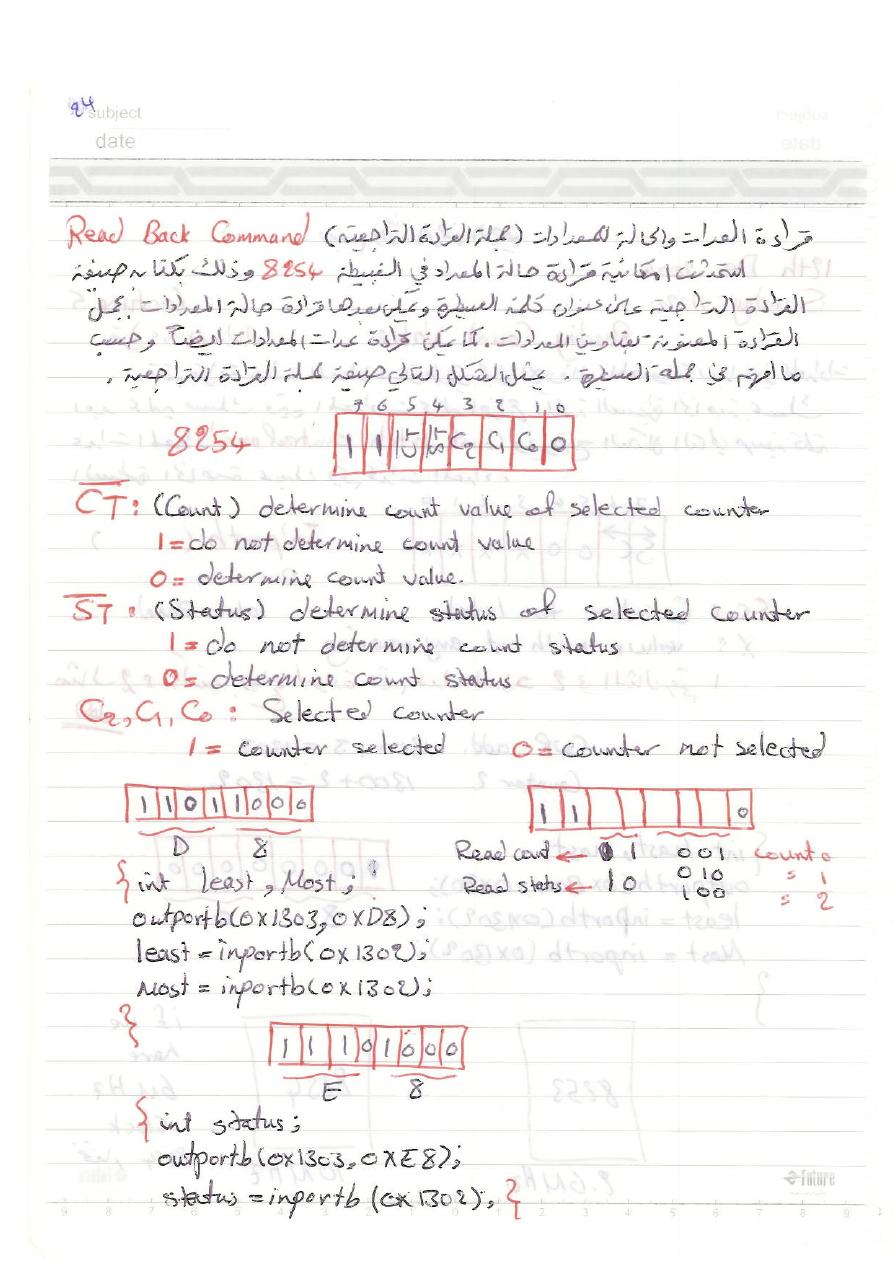 24
subject
date
Read Back Command قراءة العدات والحالة للعدادات (جملة القراءة التراجعية)
استحدثت امكانية قراءة حالة العداد في القبيطة 8254 وذلك بكتابة صيغة
القراءة التراجعية على عنوان كلمة السيطرة ويمكن بعدها قراءة حالة العدادات بجمل
القراءة المعنونة بعناوين العدادات. كما يمكن قراءة عدات العدادات ايضاً وحسب
في جملة السيطرة. يمثل الشكل التالي صيغة لجملة القراءة التراجعية.
7 6 5 4 3 2 1 0
8254 1 1 C̅T̅ S̅T̅ C2 C1 C0 0
C̅T̅: (Count) determine count value of selected counter
1 = do not determine count value
0 = determine count value.
S̅T̅: (Status) determine status of selected counter
1 = do not determine count status
0 = determine count status
C2, C1, C0 : Selected counter
1 = counter selected 0 = counter not selected
1 1 0 1 1 0 0 0
D 8
{ int least, Most;
outportb(0x1303, 0xD8);
least = inportb(0x1302);
Most = inportb(0x1302);
}
1 1 0
Read count ← 0 1 001 count 0
Read status ← 1 0 010 s 1
100 s 2
1 1 1 0 1 0 0 0
E 8
{ int status;
outportb(0x1303, 0xE8);
status = inportb(0x1302); }
Future